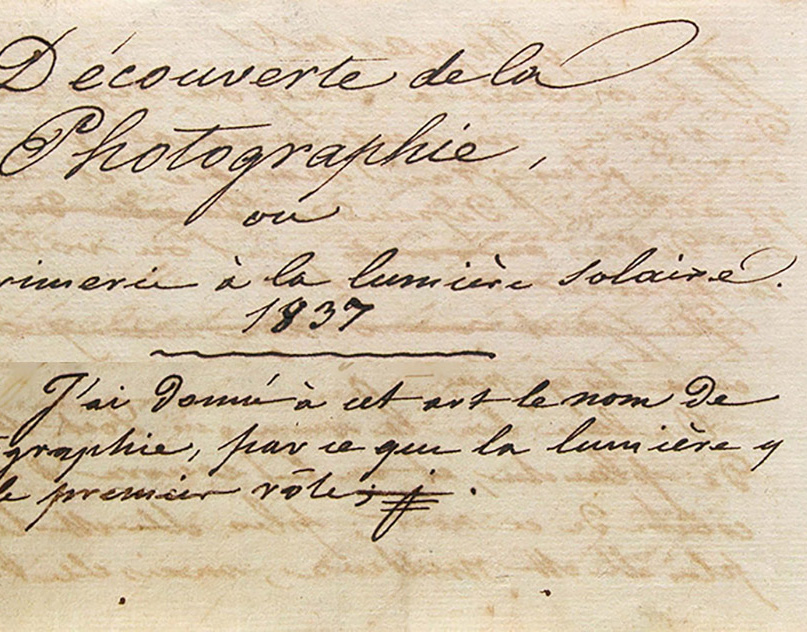 Découverte de la
Photographie,
ou
rimerie à la lumière solaire.
1837
J'ai donné à cet art le nom de
graphie, par ce que la lumière y
le premier rôle;